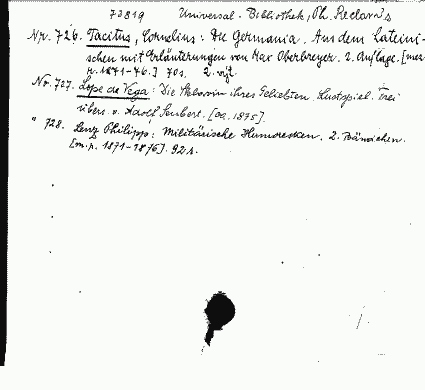 73819 Universal-Bibliothek, Ph. Reclam's
Nr. 726. Tacitus, Cornelius: Die Germania. Aus dem Lateini-
schen mit Erläuterungen von Max Oberbreyer. 2. Auflage. [mez
r. 1871-76.] 70 s. 2.
Nr. 727. Lope de Vega: Die Sklavin ihres Geliebten. Lustspiel. Frei
übers. v. Adolf Seubert. [ca. 1875].
" 728. Lenz Philipp: Militärische Humoresken. 2. Bändchen.
[m. r. 1871-1876]. 92 s.